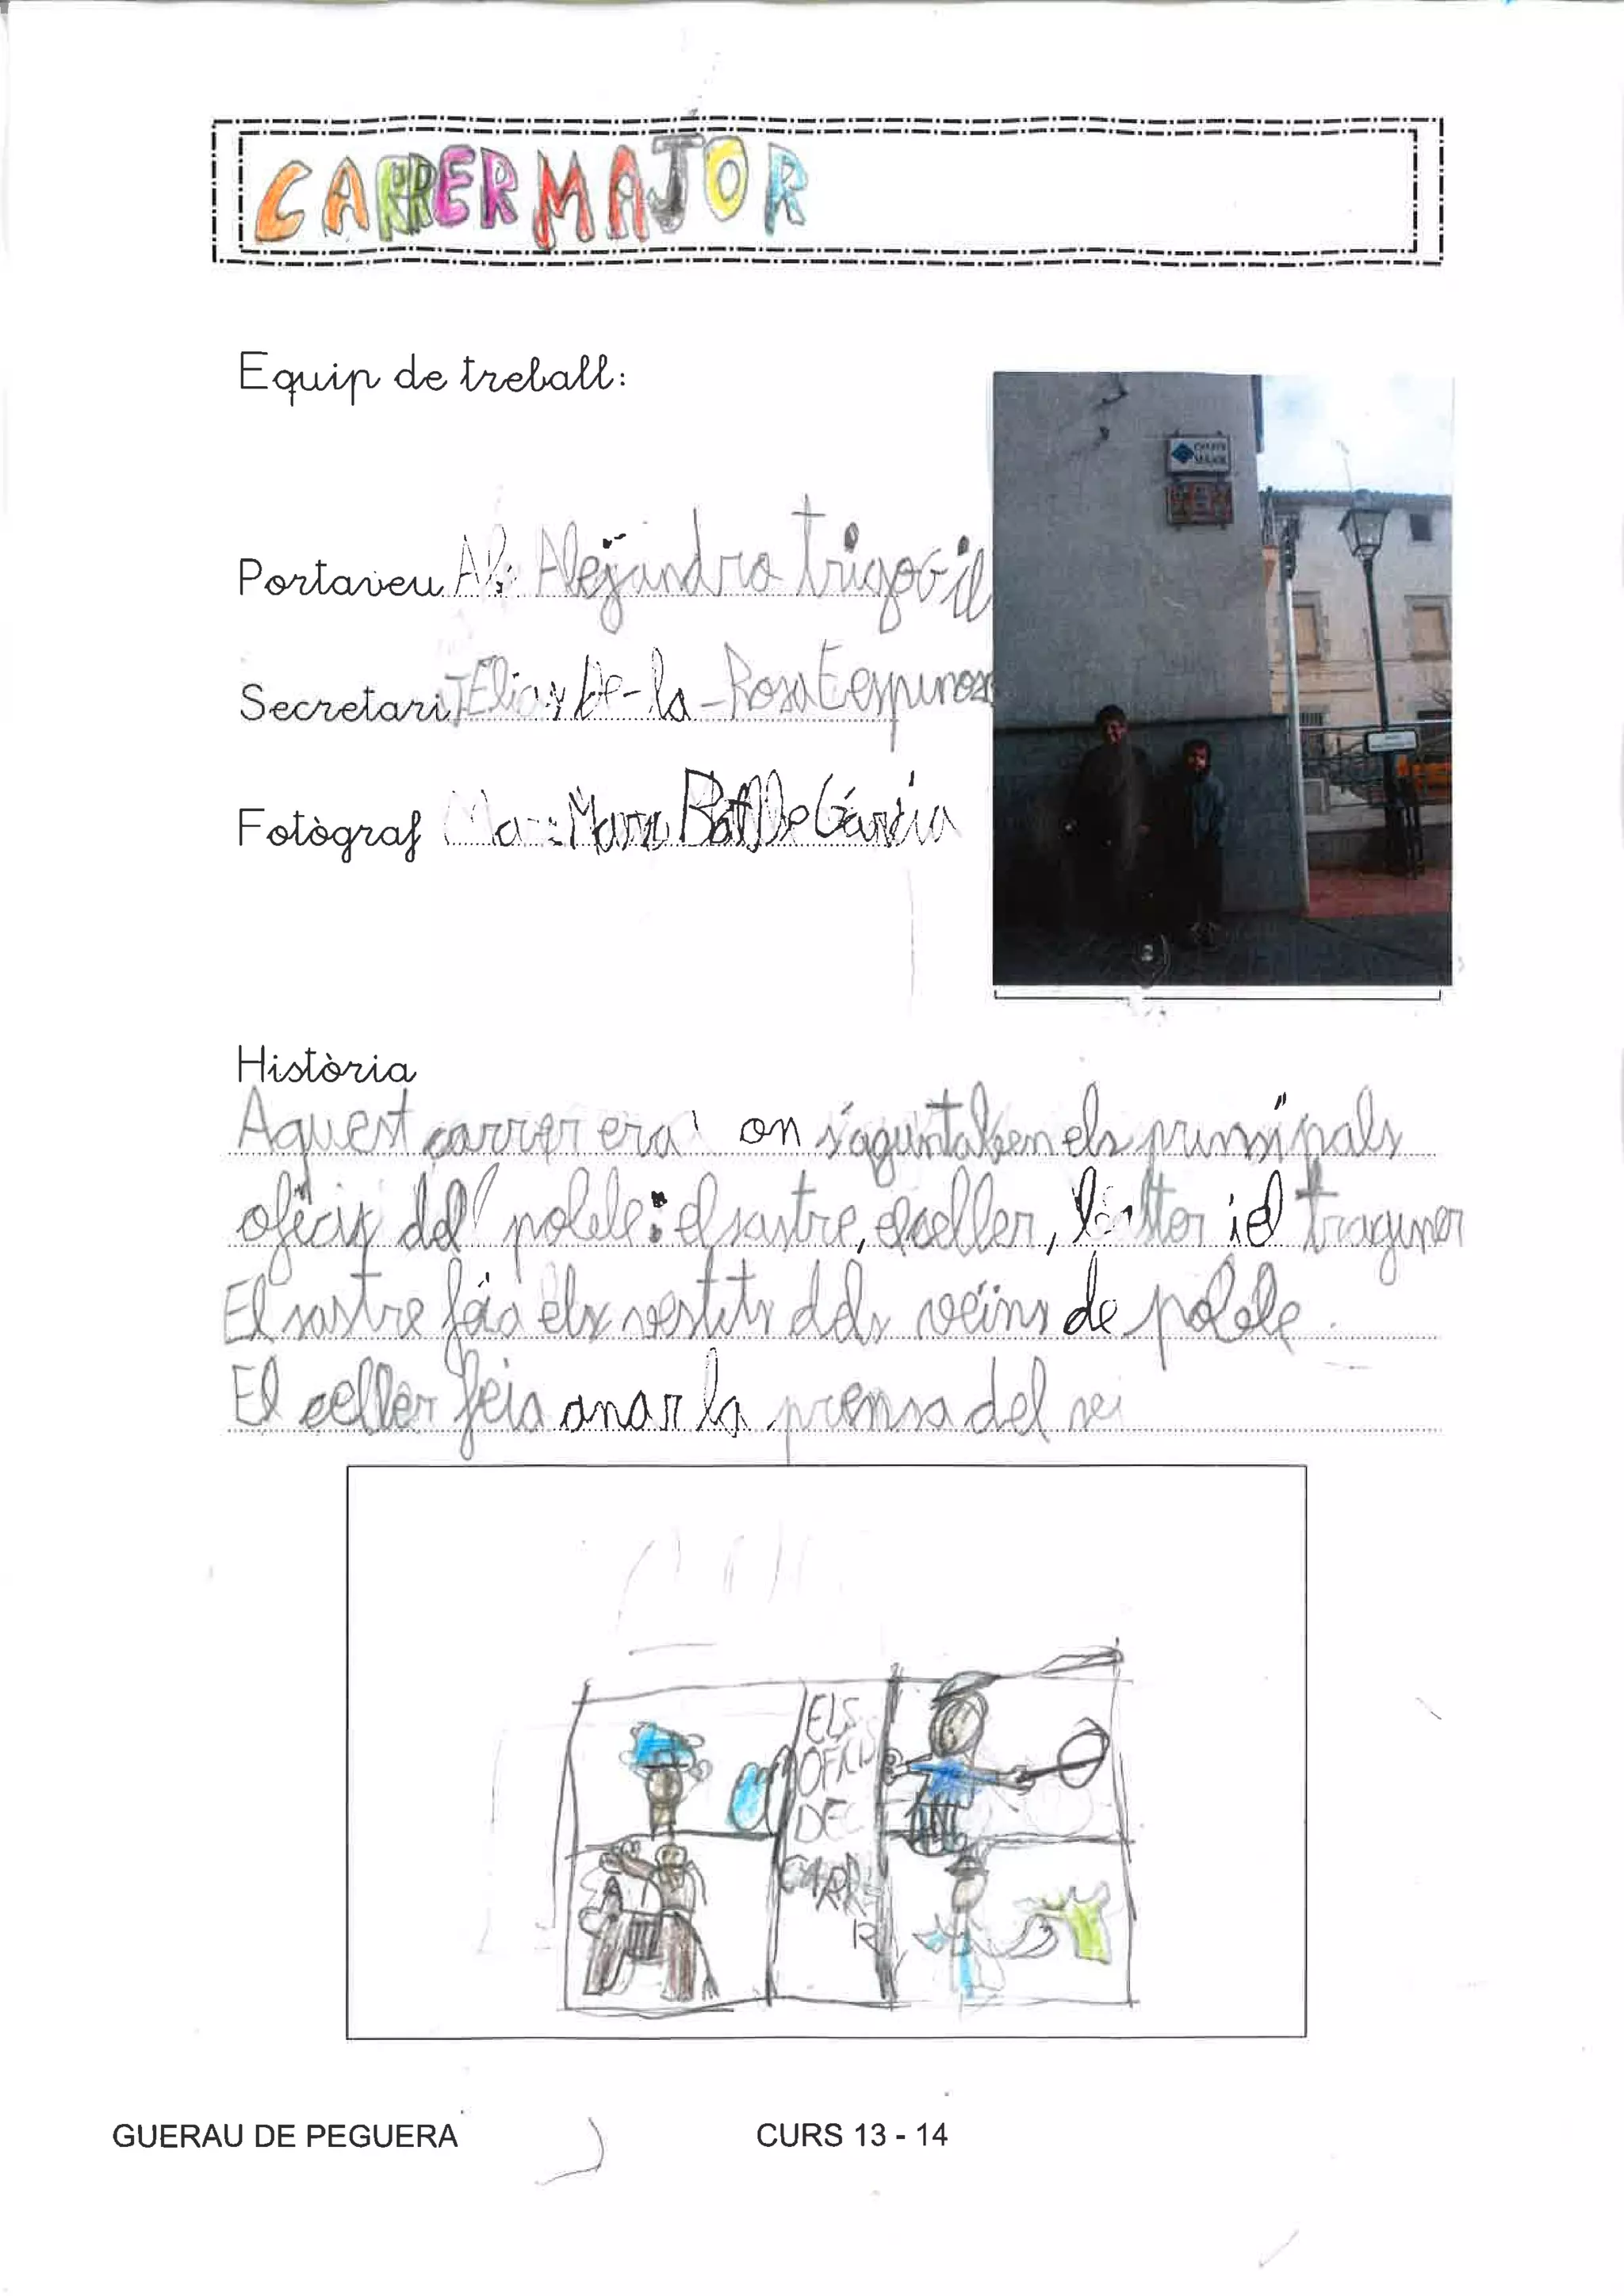 CARRER MAJOR
Equip de treball:
CARRER
MAJOR
Portaveu Alejandro trigo Gil
Secretari Elias De-la-Rosa Espinosa
Fotògraf Marc Batlle García
Història
Aquest carrer era on s'aguntaben els prinsipals
oficis del poble: el sastre, el celler, i el traguner
El sastre feia els vestits dels veïns de poble.
El celler feia anar la prensa del
ELS
OFICIS
DEL
CARRE
R
GUERAU DE PEGUERA
CURS 13 - 14